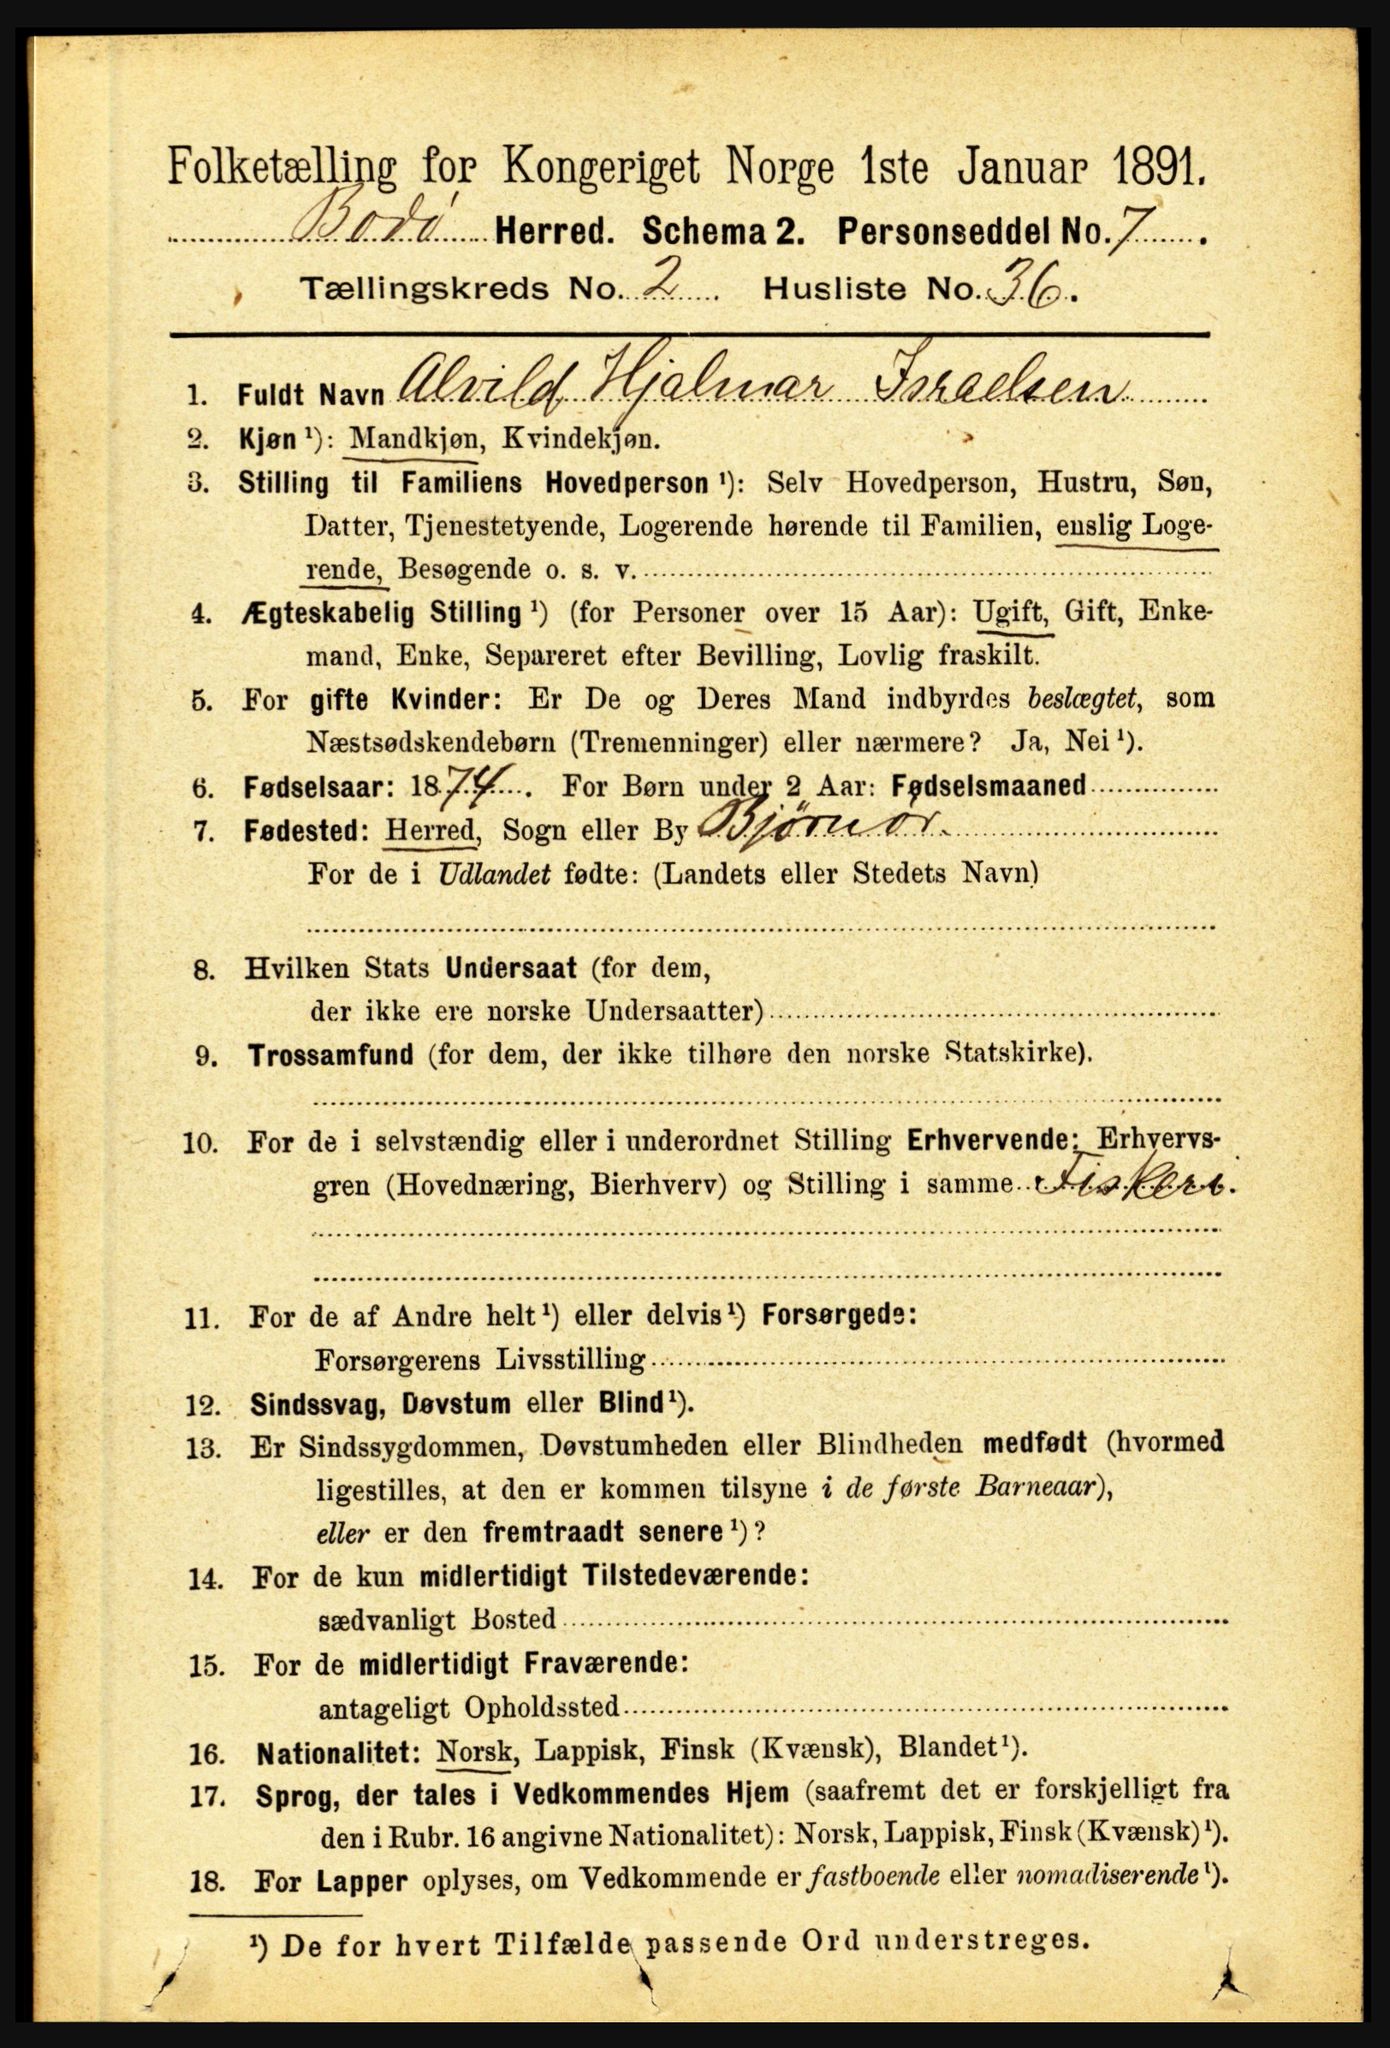 Folketælling for Kongeriget Norge 1ste Januar 1891.
Bodø Herred. Schema 2. Personseddel No. 7.
Tællingskreds No. 2 Husliste No. 36.
1. Fuldt Navn Alvild Hjalmar Israelsen
2. Kjøn¹): Mandkjøn, Kvindekjøn.
3. Stilling til Familiens Hovedperson¹): Selv Hovedperson, Hustru, Søn,
Datter, Tjenestetyende, Logerende hørende til Familien, enslig Loge-
rende, Besøgende o. s. v.
4. Ægteskabelig Stilling¹) (for Personer over 15 Aar): Ugift, Gift, Enke-
mand, Enke, Separeret efter Bevilling, Lovlig fraskilt.
5. For gifte Kvinder: Er De og Deres Mand indbyrdes beslægtet, som
Næstsødskendebørn (Tremenninger) eller nærmere? Ja, Nei¹).
6. Fødselsaar: 1874. For Børn under 2 Aar: Fødselsmaaned
7. Fødested: Herred, Sogn eller By Bjørnør.
For de i Udlandet fødte: (Landets eller Stedets Navn)
8. Hvilken Stats Undersaat (for dem,
der ikke ere norske Undersaatter)
9. Trossamfund (for dem, der ikke tilhøre den norske Statskirke).
10. For de i selvstændig eller i underordnet Stilling Erhvervende: Erhvervs-
gren (Hovednæring, Bierhverv) og Stilling i samme Fiskeri.
11. For de af Andre helt¹) eller delvis¹) Forsørgede:
Forsørgerens Livsstilling
12. Sindssvag, Døvstum eller Blind¹).
13. Er Sindssygdommen, Døvstumheden eller Blindheden medfødt (hvormed
ligestilles, at den er kommen tilsyne i de første Barneaar),
eller er den fremtraadt senere¹)?
14. For de kun midlertidigt Tilstedeværende:
sædvanligt Bosted
15. For de midlertidigt Fraværende:
antageligt Opholdssted
16. Nationalitet: Norsk, Lappisk, Finsk (Kvænsk), Blandet¹).
17. Sprog, der tales i Vedkommendes Hjem (saafremt det er forskjelligt fra
den i Rubr. 16 angivne Nationalitet): Norsk, Lappisk, Finsk (Kvænsk)¹).
18. For Lapper oplyses, om Vedkommende er fastboende eller nomadiserende¹).
¹) De for hvert Tilfælde passende Ord understreges.